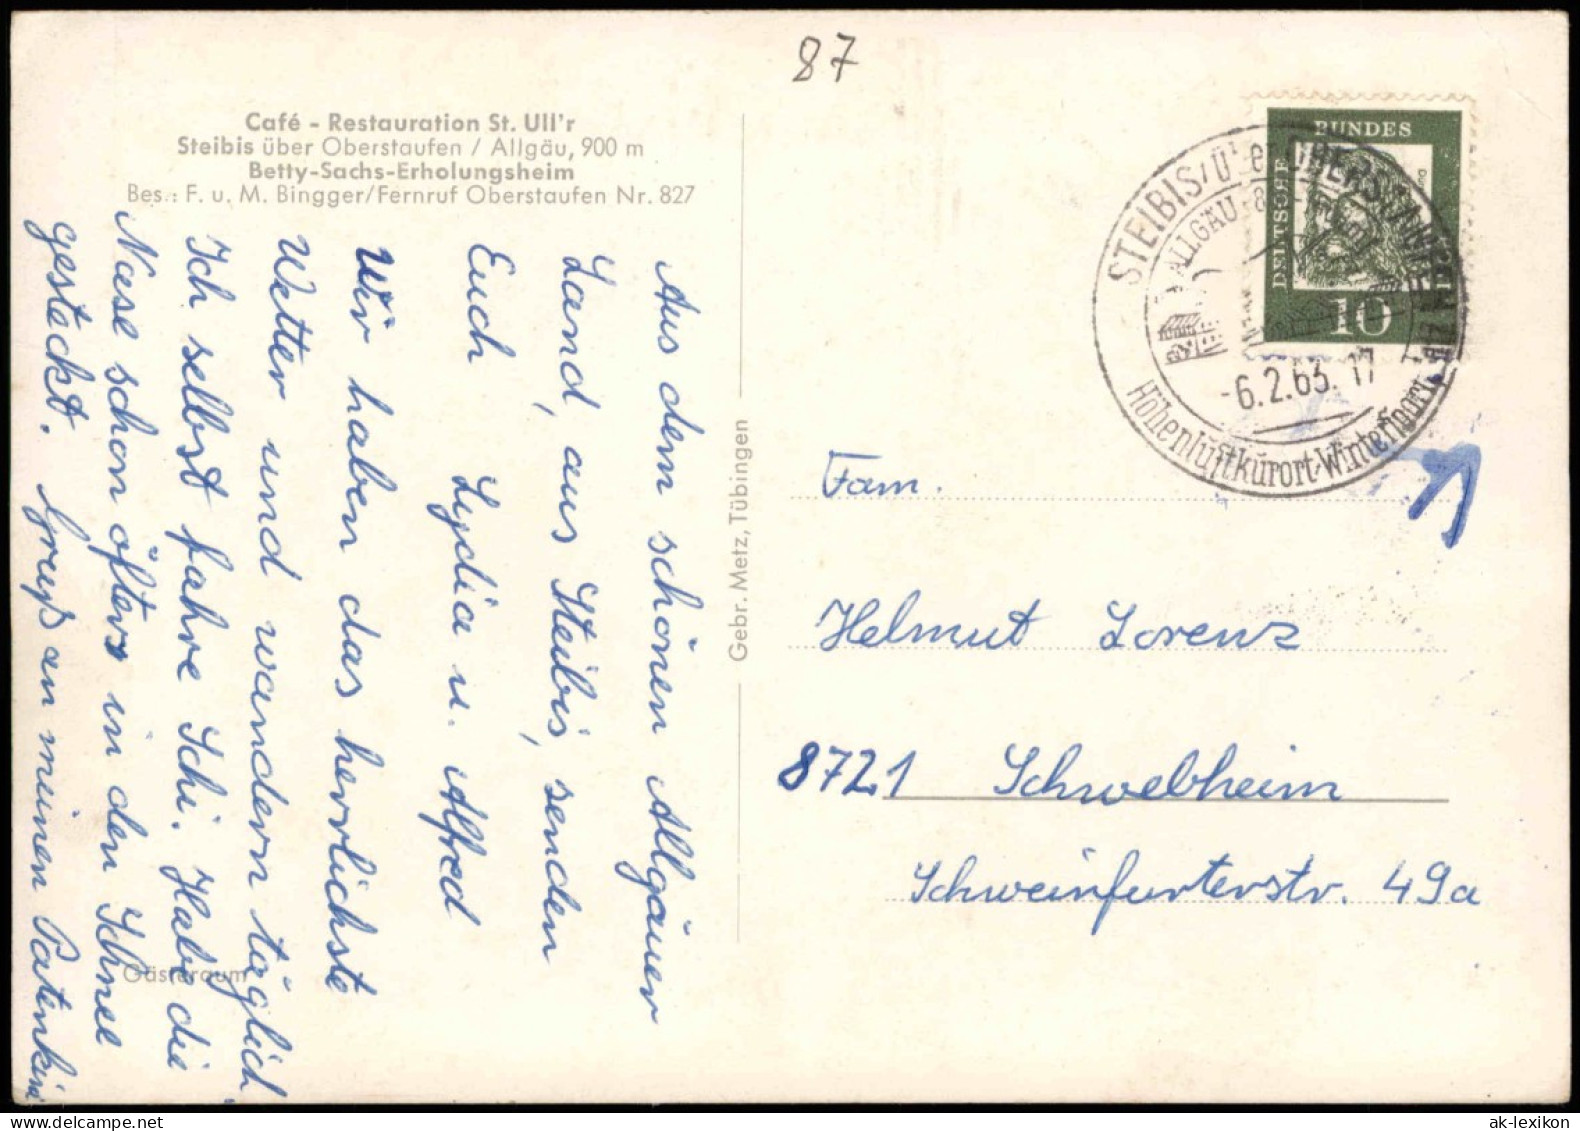 87
Café - Restauration St. Ull'r
Steibis über Oberstaufen / Allgäu, 900 m
Betty-Sachs-Erholungsheim
Bes.: F. u. M. Bingger/Fernruf Oberstaufen Nr. 827
Aus dem schönen Allgäuer
Land, aus Steibis, senden
Euch Lydia u. Alfred
Wir haben das herrlichste
Wetter und wandern täglich.
Ich selbst fahre Schi. Habe die
Nase schon öfters in den Schnee
gesteckt. Gruß an meinen Patenkind
Gästeraum
Gebr. Metz, Tübingen
DEUTSCHE
BUNDES
10
STEIBIS/über OBERSTAUFEN
ALLGÄU
-6.2.63.17
Höhenluftkurort-Wintersport
Fam.
Helmut Lorenz
8721 Schwebheim
Schweinfurterstr. 49a
ak-lexikon